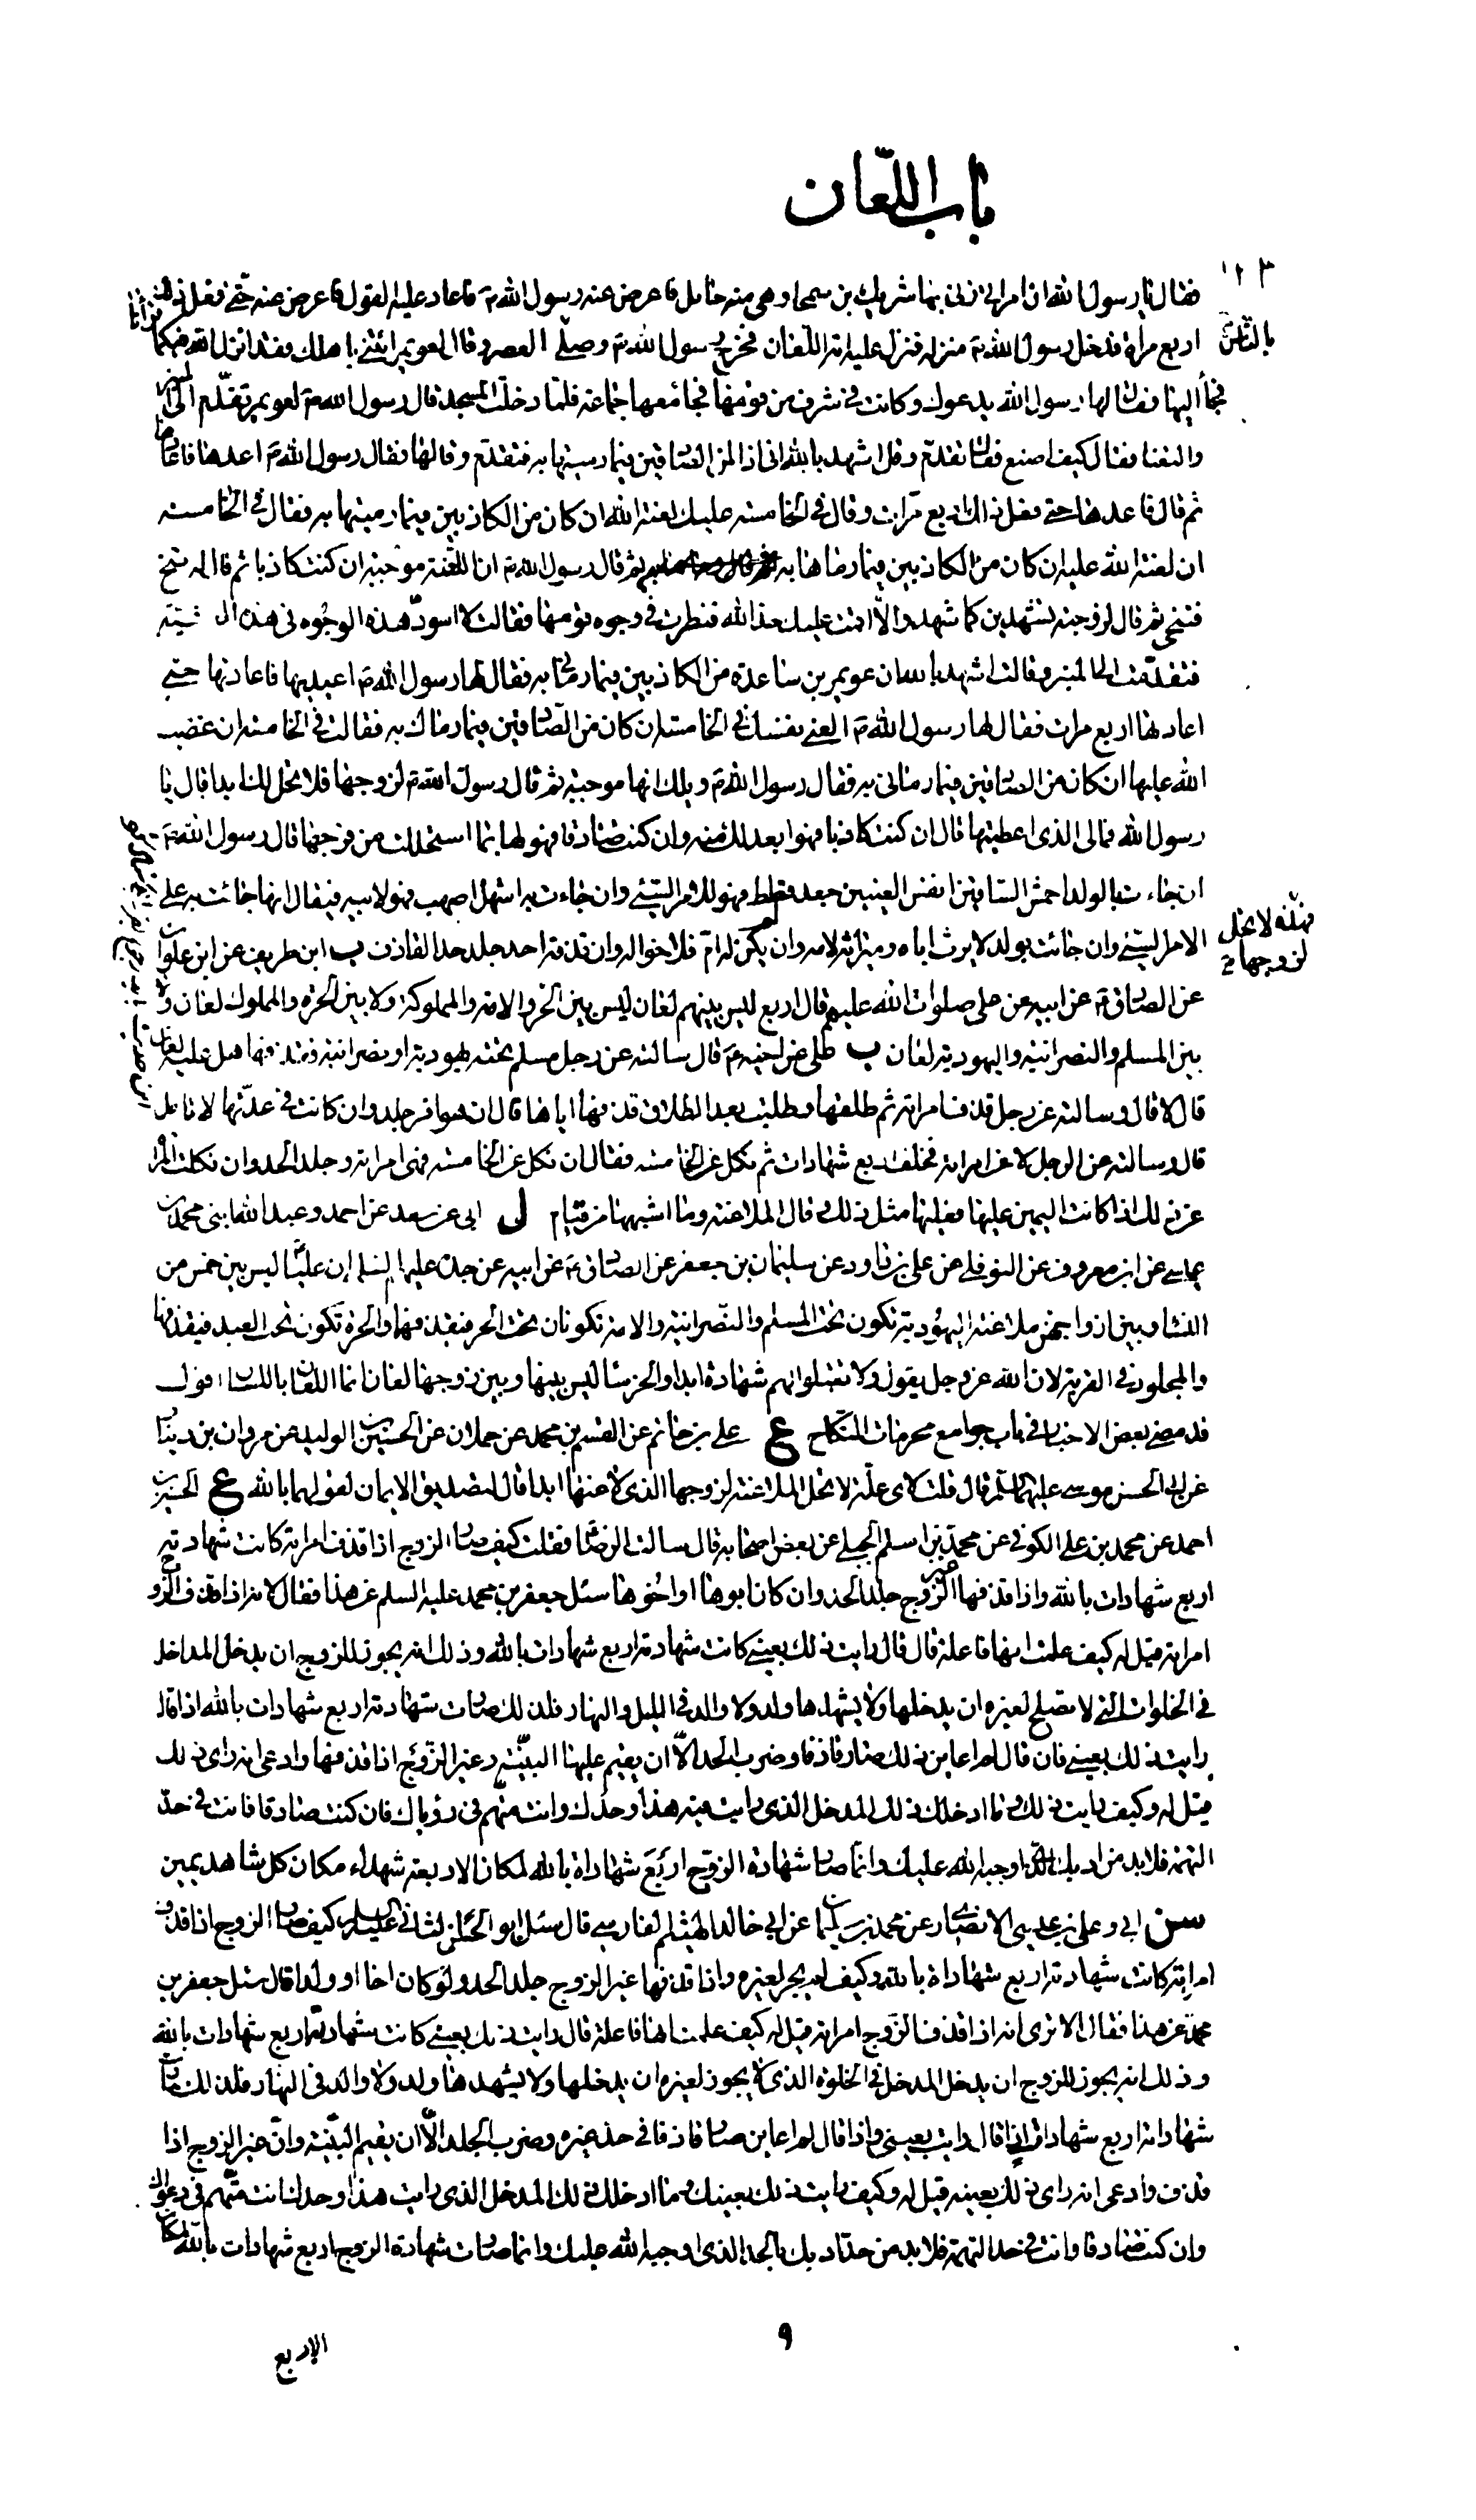 باب اللّعان
١٢٣
فقال يا رسول الله ان امراتي زنى بها شريك بن سمحا وهي منه حامل فاعرض عنه رسول الله ص فاعاد عليه القول فاعرض عنه حتى فعل ذلك
اربع مرات فدخل رسول الله ص منزله فنزل عليه اية اللعان فخرج رسول الله ص وصلى العصر وقال لعويمر ائتني باهلك فقد انزل الله فيكما قرانا
بالناس
فجاء اليها فقال لها رسول الله يدعوك وكانت في شرف من قومها فجاء معها جماعة فلما دخلت المسجد قال رسول الله ص لعويمر تقدّم الى المنبر
والتعنا فقال كيف اصنع فقال تقدم وقل اشهد بالله اني اذا لمن الصادقين فيما رميتها به فتقدم وقالها فقال رسول الله ص اعدها فاعادها
ثم قال فاعدها حتى فعل ذلك اربع مرات وقال في الخامسة عليك لعنة الله ان كان من الكاذبين فيما رميتها به فقال في الخامسة
ان لعنة الله عليه ان كان من الكاذبين فيما رماها به ثم قال رسول الله ص ان اللعنة موجبة ان كنت كاذبا ثم قال له تنح
فتنحى ثم قال لزوجته تشهدين كما شهد والا اقمت عليك حد الله فنظرت في وجوه قومها فقالت لا اسود هذه الوجوه في هذه العشية
فتقدمت الى المنبر وقالت اشهد بالله ان عويمر بن ساعدة من الكاذبين فيما رماني به فقال لها رسول الله ص اعيديها فاعادتها حتى
اعادتها اربع مرات فقال لها رسول الله ص العني نفسك في الخامسة ان كان من الصادقين فيما رماك به فقالت في الخامسة ان غضب
الله عليها ان كان من الصادقين فيما رماني به فقال رسول الله ص ويلك انها موجبة ثم قال رسول الله ص لزوجها فلا تحل لك ابدا قال يا
رسول الله فمالي الذي اعطيتها قال ان كنت كاذبا فهو ابعد لك منه وان كنت صادقا فهو لها بما استحللت من فرجها قال رسول الله ص
ان جاءت بالولد احمش الساقين انفس العينين جعد قطط فهو للامر السيّئ وان جاءت به اشهل اصهب فهو لابيه فيقال انها جائت به على
فهذه لا تحل لزوجها
الامر السيّئ وان جائت بولد لا يرث اباه وميراثه لامه وان لم يكن له ام فلاخواله وان قذفه احد جلد حد القاذف ب ابن طريف عن ابن علوان
عن الصادق ع عن ابيه عن علي صلوات الله عليهم قال اربع ليس بينهم لعان ليس بين الحر والامة والمملوكة ولا بين الحرة والمملوك لعان ولا
بين المسلم والنصرانية واليهودية لعان ب علي عن اخيه ع قال سالته عن رجل مسلم تحته يهودية او نصرانية فقذفها هل عليه لعان
قال لا قال وسالته عن رجل قذف امراته ثم طلقها وطلبت بعد الطلاق قذفه اياها قال ان هو اقر جلد وان كانت في عدتها لاعن
قال وسالته عن الرجل لاعن امراته فحلف اربع شهادات ثم نكل عن الخامسة فقال ان نكل عن الخامسة فهي امراته وجلد الحد وان نكلت المراة
عن ذلك اذا كانت اليمين عليها فعليها مثل ذلك قال الملاعنة وما اشبهها من قيام ل ابي عن سعد عن احمد وعبد الله ابني محمد بن
عيسى عن ابن معروف عن النوفلي عن علي بن داود عن سليمان بن جعفر عن الصادق ع عن ابيه عن جده عليهم السلم ان عليّا ليس بين خمس من
النساء وبين ازواجهن ملاعنة اليهودية تكون تحت المسلم والنصرانية والامة تكونان تحت الحر فيقذفها والحرة تكون تحت العبد فيقذفها
والمجلود في الفرية لان الله عز وجل يقول ولا تقبلوا لهم شهادة ابدا والخرساء ليس بينها وبين زوجها لعان انما اللعان باللسان اقول
قد مضى بعض الاخبار في باب جوامع محرمات النكاح ع علي بن حاتم عن القسم بن محمد عن حمدان عن الحسين بن الوليد عن مروان بن دينار
عن ابي الحسن موسى عليهما السلم قال قلت لاي علة لا تحل الملاعنة لزوجها الذي لاعنها ابدا قال لتصديق الايمان لقولهما بالله ع الحسين بن
احمد عن محمد بن علي الكوفي عن محمد بن اسلم الجبلي عن بعض اصحابه قال سالت الرضا فقلت كيف صار الزوج اذا قذف امراته كانت شهادته
اربع شهادات بالله واذا قذفها غير الزوج جلد الحد وان كان ابوها او اخوها سئل جعفر بن محمد عليه السلم عن هذا فقال لانه اذا قذف الزوج
امراته قيل له كيف علمت انها فاعلة قال قال رايت ذلك بعيني كانت شهادته اربع شهادات بالله وذلك انه يجوز للزوج ان يدخل المداخل
في الخلوات التي لا تصلح لغيره ان يدخلها ولا يشهدها ولد ولا والد في الليل والنهار فلذلك صارت شهادته اربع شهادات بالله اذا قال
رايت ذلك بعيني فان قال لم اعاين ذلك صار قاذفا وضرب الحد الاّ ان يقيم عليها البيّنة وغير الزوج اذا قذفها وادعى انه راى ذلك
قيل له وكيف رايت ذلك وما ادخلك ذلك المدخل الذي رايت فيه هذا وحدك وانت متهم في رؤياك فان كنت صادقا فانت في حد
التهمة فلا بد من ادبك الذي اوجبه الله عليك وانما صار شهادة الزوج اربع شهاداة بالله لمكان الاربعة شهداء مكان كل شاهد يمين
سن ابي وعلي بن عيسى الانصاري عن محمد بن سليمان عن ابي خالد الهيثم الفارسي قال سئل ابو الحسن الثاني عليه السلم كيف صار الزوج اذا قذف
امراته كانت شهادته اربع شهاداة بالله وكيف لم يجز لغيره واذا قذفها غير الزوج جلد الحد ولو كان اخا او ولدا قال سئل جعفر بن
محمد عن هذا فقال الا ترى انه اذا قذف الزوج امراته قيل له كيف علمت انها فاعلة قال رايت ذلك بعيني كانت شهادته اربع شهادات بالله
وذلك انه يجوز للزوج ان يدخل المدخل في الخلوة الذي لا يجوز لغيره ان يدخلها ولا يشهدها ولد ولا والد في النهار فلذلك صارت
شهادته اربع شهادات اذا قال رايت بعيني واذا قال لم اعاين صار قاذفا في حد غيره وضرب الجلد الّا ان يقيم البيّنة وانّ غير الزوج اذا
قذف وادعى انه راى ذلك بعينه قيل له وكيف رايت ذلك بعينك وما ادخلك ذلك المدخل الذي رايت هذا وحدك انت متّهم في دعواك
وان كنت صادقا وانت في حد التهمة فلا بد من حد ادبك بالحد الذي اوجبه الله عليك وانما صارت شهادة الزوج اربع شهادات بالله لمكان
٩
الاربع